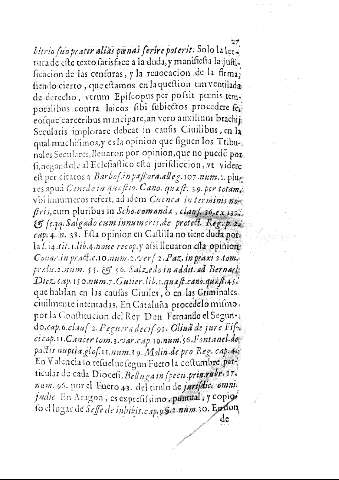 27
bitrio suo præter alias pœnas ferire poterit. Solo la le-
tura de este texto satisface a la duda, y manifiesta la justi-
ficacion de las censuras, y la reuocacion de la firma;
siendo cierto, que estamos en la question tan ventilada
de derecho, vtrum Episcopus per possit pœnis tem-
poralibus contra laicos sibi subiectos procedere se,
eosque carceribus mancipare, an vero auxilium brachij
Secularis implorare debeat in causis Ciuilibus, en la
qual muchissimos, y es la opinion que siguen los Tribu-
nales Seculares, lleuaron por opinion, que no puede por
si, negandole al Eclesiastico esta jurisdiccion, vt videre
est per citatos à Barbosa in pastora. alleg. 107. num. 1. plu-
res apud Cenedo in quæstio. Cano. quæst. 39. per totam,
vbi innumeros refert, ad idem Cuenca in terminis no-
stris, cum pluribus in Scho. comanda, claus. 36. ex 132.
& seqq. Salgado cum innumeris de protect. Reg. p. 2.
cap. 4. n. 38. Esta opinion en Castilla no tiene duda por
la l. 14. tit. 1. lib. 4. noue recop. y assi lleuaron esta opinion
Couar. in pract. c. 10. num. 2. vers. 2. Paz, in praxi 2. tom.
prelu. 2. num. 55. & 56. Salzedo in addit. ad Bernar.
Diez. cap. 150. num. 7. Gutier. lib. 1. quæst. cano. quæst. 45.
que hablan en las causas Ciuiles, o en las Criminales
ciuilmente intentadas. En Cataluña procede lo mismo
por la Constitucion del Rey Don Fernando el Segun-
do, cap. 6. claus. 2. Peguera decis. 92. Oliua de jure Fis-
ci cap. 11. Cancer tom. 3. var. cap. 10. num. 56. Fontanel. de
pactis nuptia. glos. 21. num. 19. Molin. de pro Reg. cap. 4.
En Valencia lo resuelue segun Fuero la costumbre par-
ticular de cada Diocesi. Belluga in specu. prin. rubr. 37.
num. 96. por el Fuero 43. del titulo de jurisdic. omni.
judic. En Aragon, es expressissimo, puntual, y copio-
so el lugar de Sesse de inhibit. cap. 9. §. 2. num. 30. En don
de